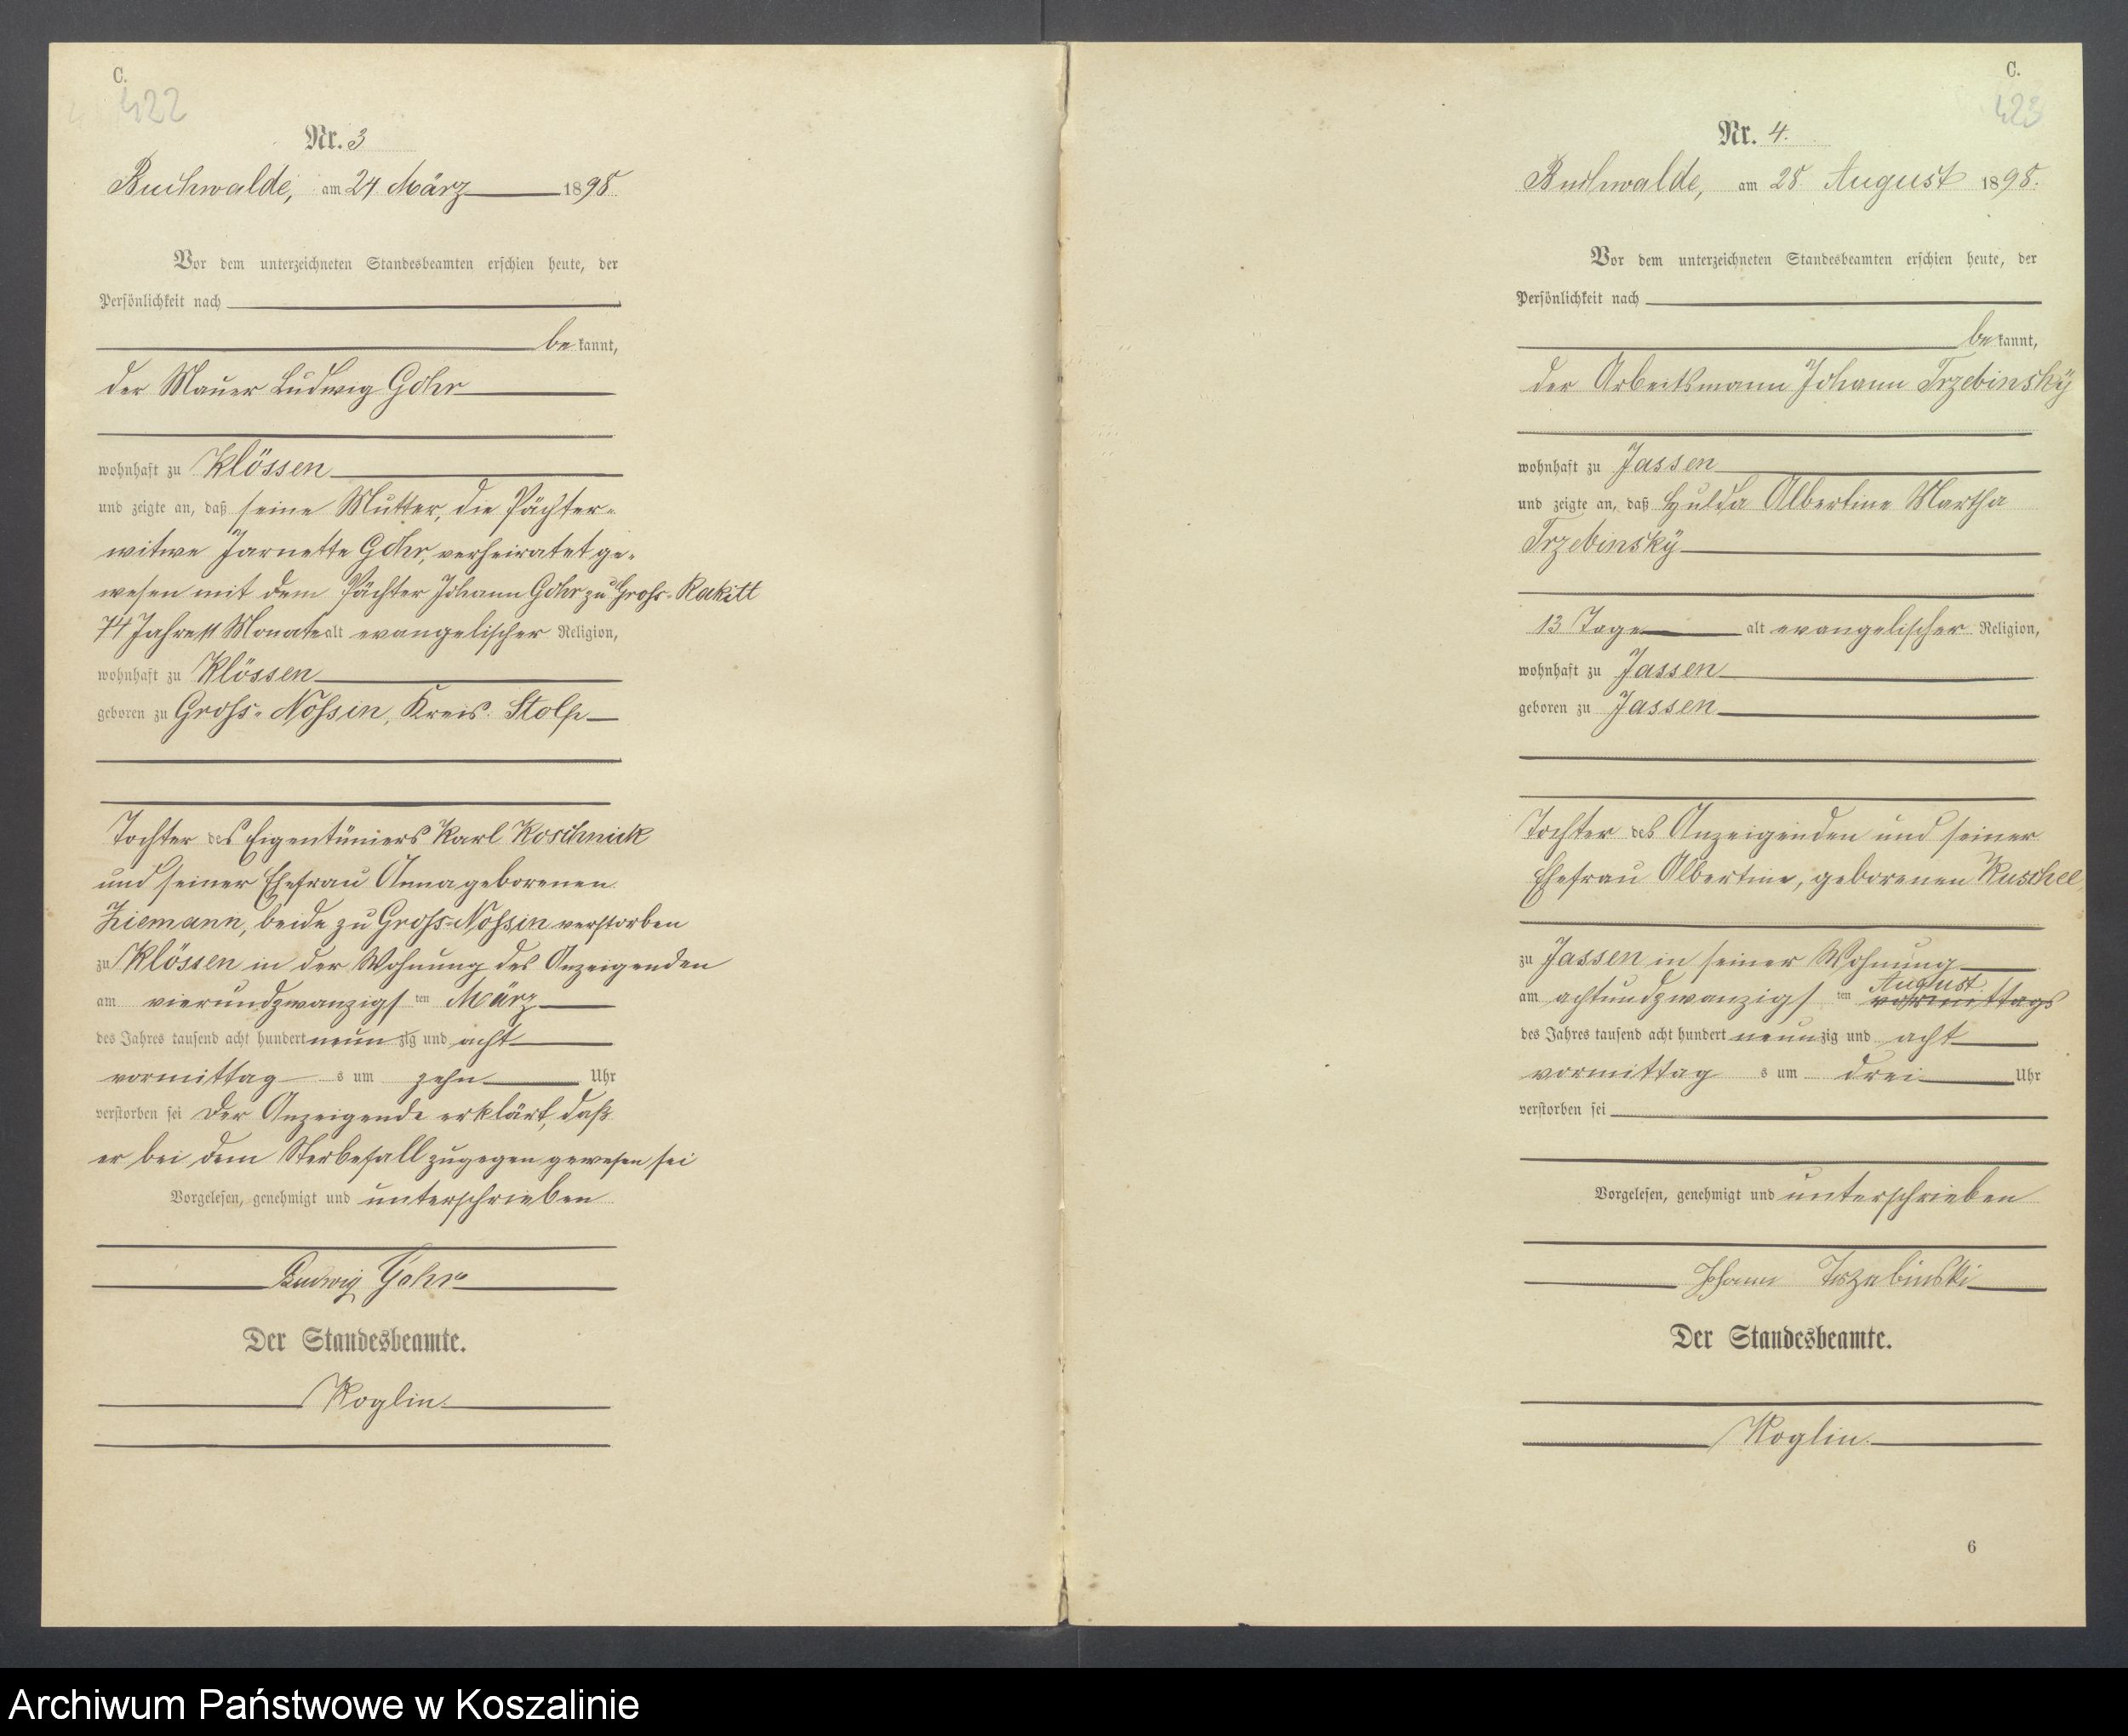 C.
422
Nr. 3
Buchwalde, am 24 März 1898.
Vor dem unterzeichneten Standesbeamten erschien heute, der
Persönlichkeit nach
be kannt,
der Mauer Ludwig Gohr
wohnhaft zu Klössen
und zeigte an, daß seine Mutter, die Pächter-
witwe Jarnette Gohr, verheiratet ge-
wesen mit dem Pächter Johann Gohr zu Groß-Rakitt
74 Jahre 11 Monate alt evangelischer Religion,
wohnhaft zu Klössen
geboren zu Groß-Nossin, Kreis Stolp
Tochter des Eigentümers Karl Koschnick
und seiner Ehefrau Anna geborenen
Ziemann, beide zu Groß-Nossin verstorben
zu Klössen in der Wohnung des Anzeigenden
am vierundzwanzigs ten März
des Jahres tausend acht hundert neun zig und acht
vormittag s um zehn Uhr
verstorben sei Der Anzeigende erklärt, daß
er bei dem Sterbefall zugegen gewesen sei
Vorgelesen, genehmigt und unterschrieben
Ludwig Gohr
Der Standesbeamte.
Koglin.
C.
423
Nr. 4.
Buchwalde, am 28 August 1898.
Vor dem unterzeichneten Standesbeamten erschien heute, der
Persönlichkeit nach
be kannt,
der Arbeitsmann Johann Trzebinsky
wohnhaft zu Jassen
und zeigte an, daß Hulda Albertine Martha
Trzebinsky
13 Tage alt evangelischer Religion,
wohnhaft zu Jassen
geboren zu Jassen
Tochter des Anzeigenden und seiner
Ehefrau Albertine, geborenen Kuschel
zu Jassen in seiner Wohnung
August
am achtundzwanzigs ten vormittags
des Jahres tausend acht hundert neunzig und acht
vormittag s um drei Uhr
verstorben sei
Vorgelesen, genehmigt und unterschrieben
Johann Trzebinski
Der Standesbeamte.
Koglin.
6
Archiwum Państwowe w Koszalinie